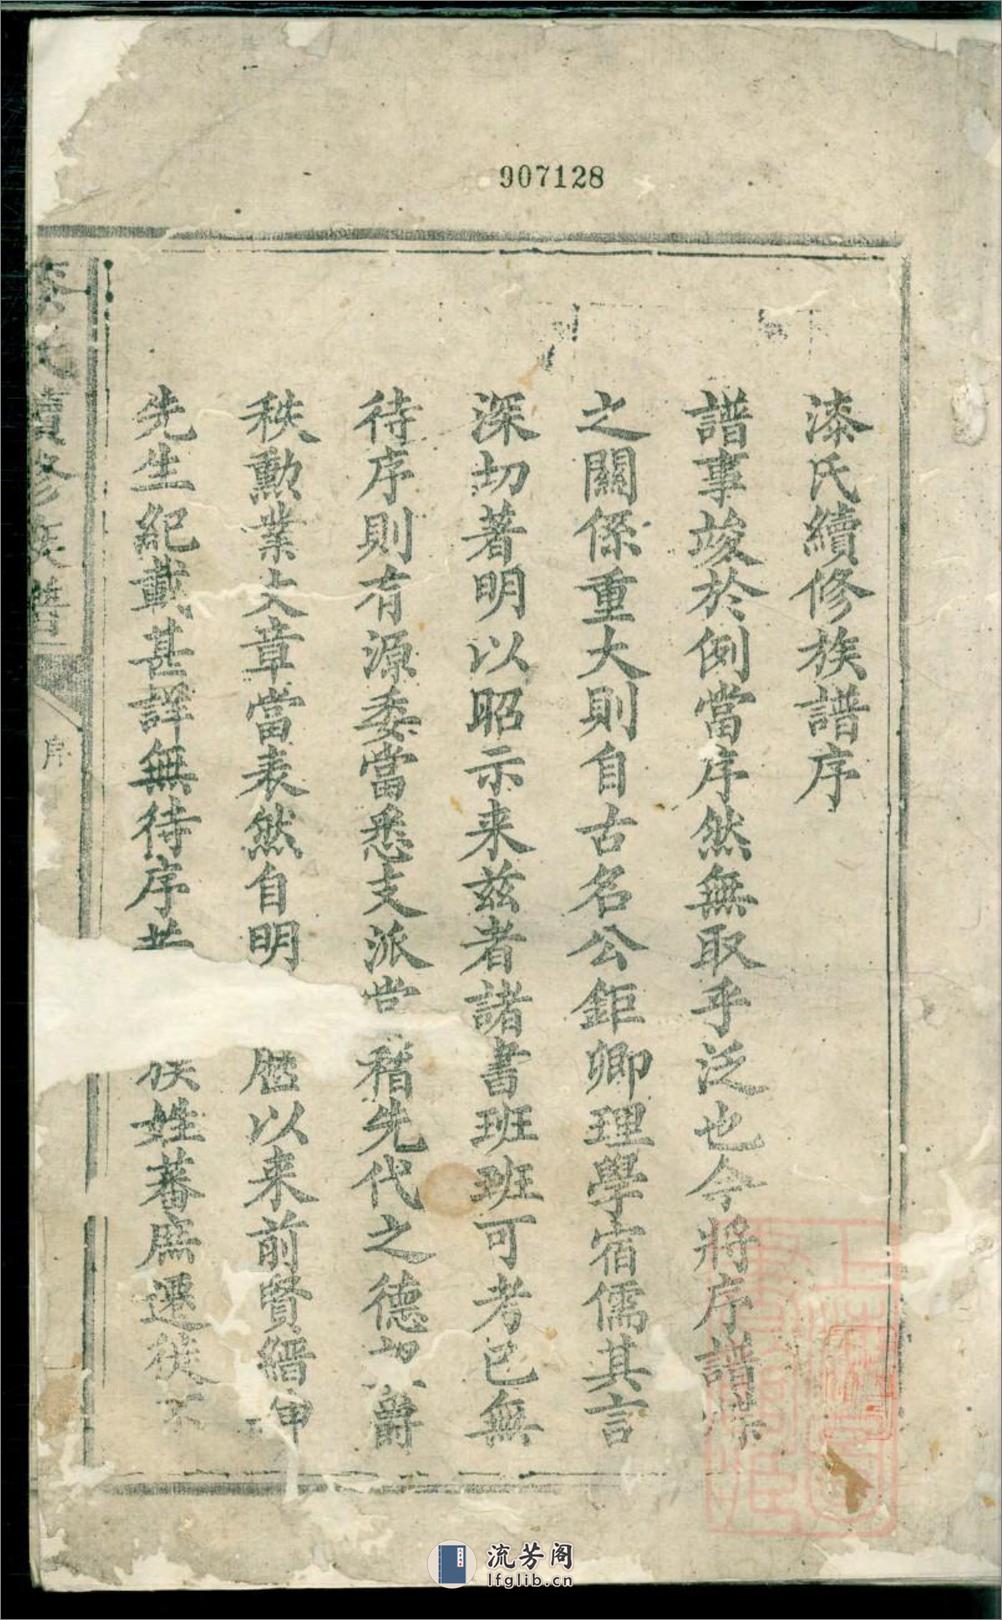 907128
漆氏續修族譜序
譜事竣於例當序然無取乎泛也今將序譜
之關係重大則自古名公鉅卿理學宿儒其言
深切著明以昭示来兹者諸書班班可考已無
待序則有源委當悉支派當稽先代之德 爵
秩勳業文章當表然自明 以来前賢縉紳
先生紀載甚詳無待序 族姓蕃庶遷徙不
氏續修族譜
序
流芳阁
lfglib.cn